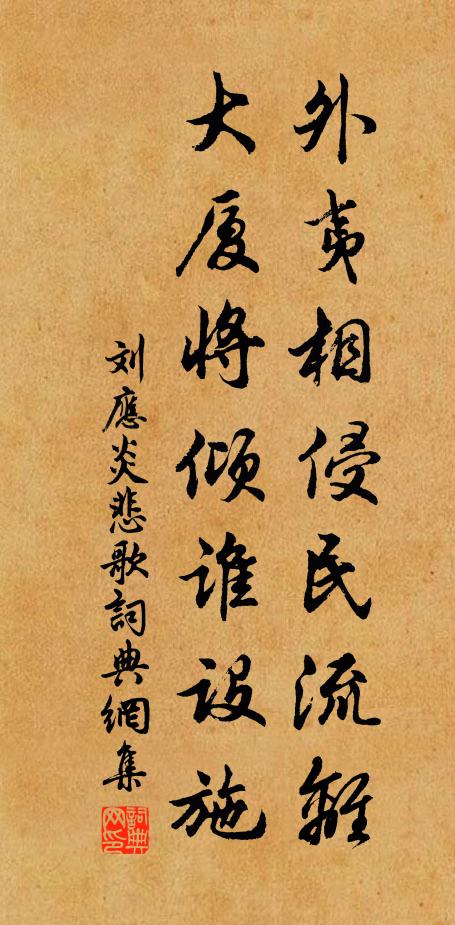 外夷相侵民流離
大厦将倾谁設施
刘應炎悲歌詞典網集
詞典
网印